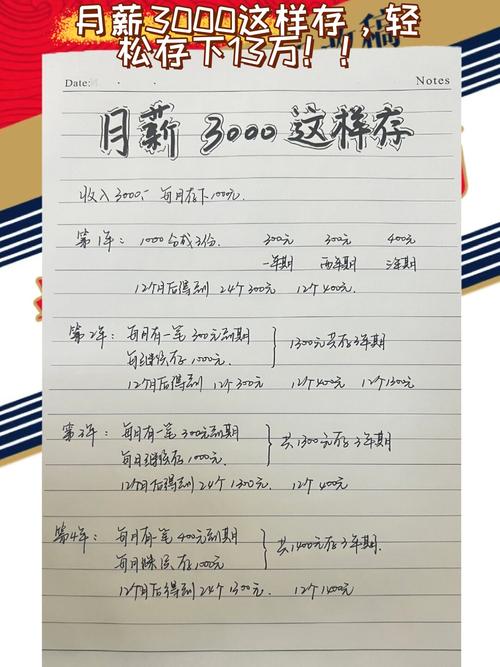 月薪3000这样存，轻
松存下13万！！
Date:
Notes
月薪3000这样存
收入3000,- 每月存下1000元.
第1年: 1000分成3份. 300元 300元 400元
一年期 两年期 三年期
12个月后得到 24个300元 12个400元
第2年: 每月有一笔300元到期
每月继续存1000元.
1300元共存3年期
12个月后得到 12个300元 12个400元 12个1300元
第3年: 每月有一笔300元到期
每月继续存1000元.
共1300元存3年期
12个月后得到24个1300元. 12个400元
第4年: 每月有一笔400元到期
每月继续存1000元
共1400元存3年期.
12个月后得到24个1300元. 12个1400元